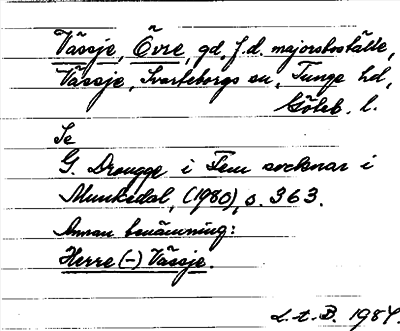 Vässje, Övre, gd, f.d. majorsboställe,
Vässje, Svarteborgs sn, Tunge hd,
Göteb. l.
Se
G. Drougge i Fem socknar i
Munkedal, (1980), s. 363.
Annan benämning:
Herre (-) Vässje.
L.t.B. 1984.